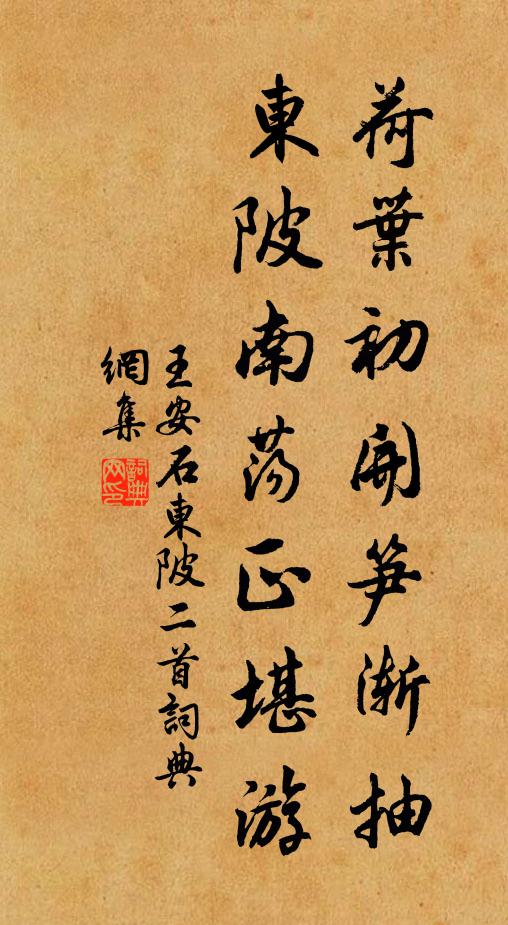 荷葉初開笋漸抽
東陂南蕩正堪游
王安石東陂二首詞典
網集
詞典
网印